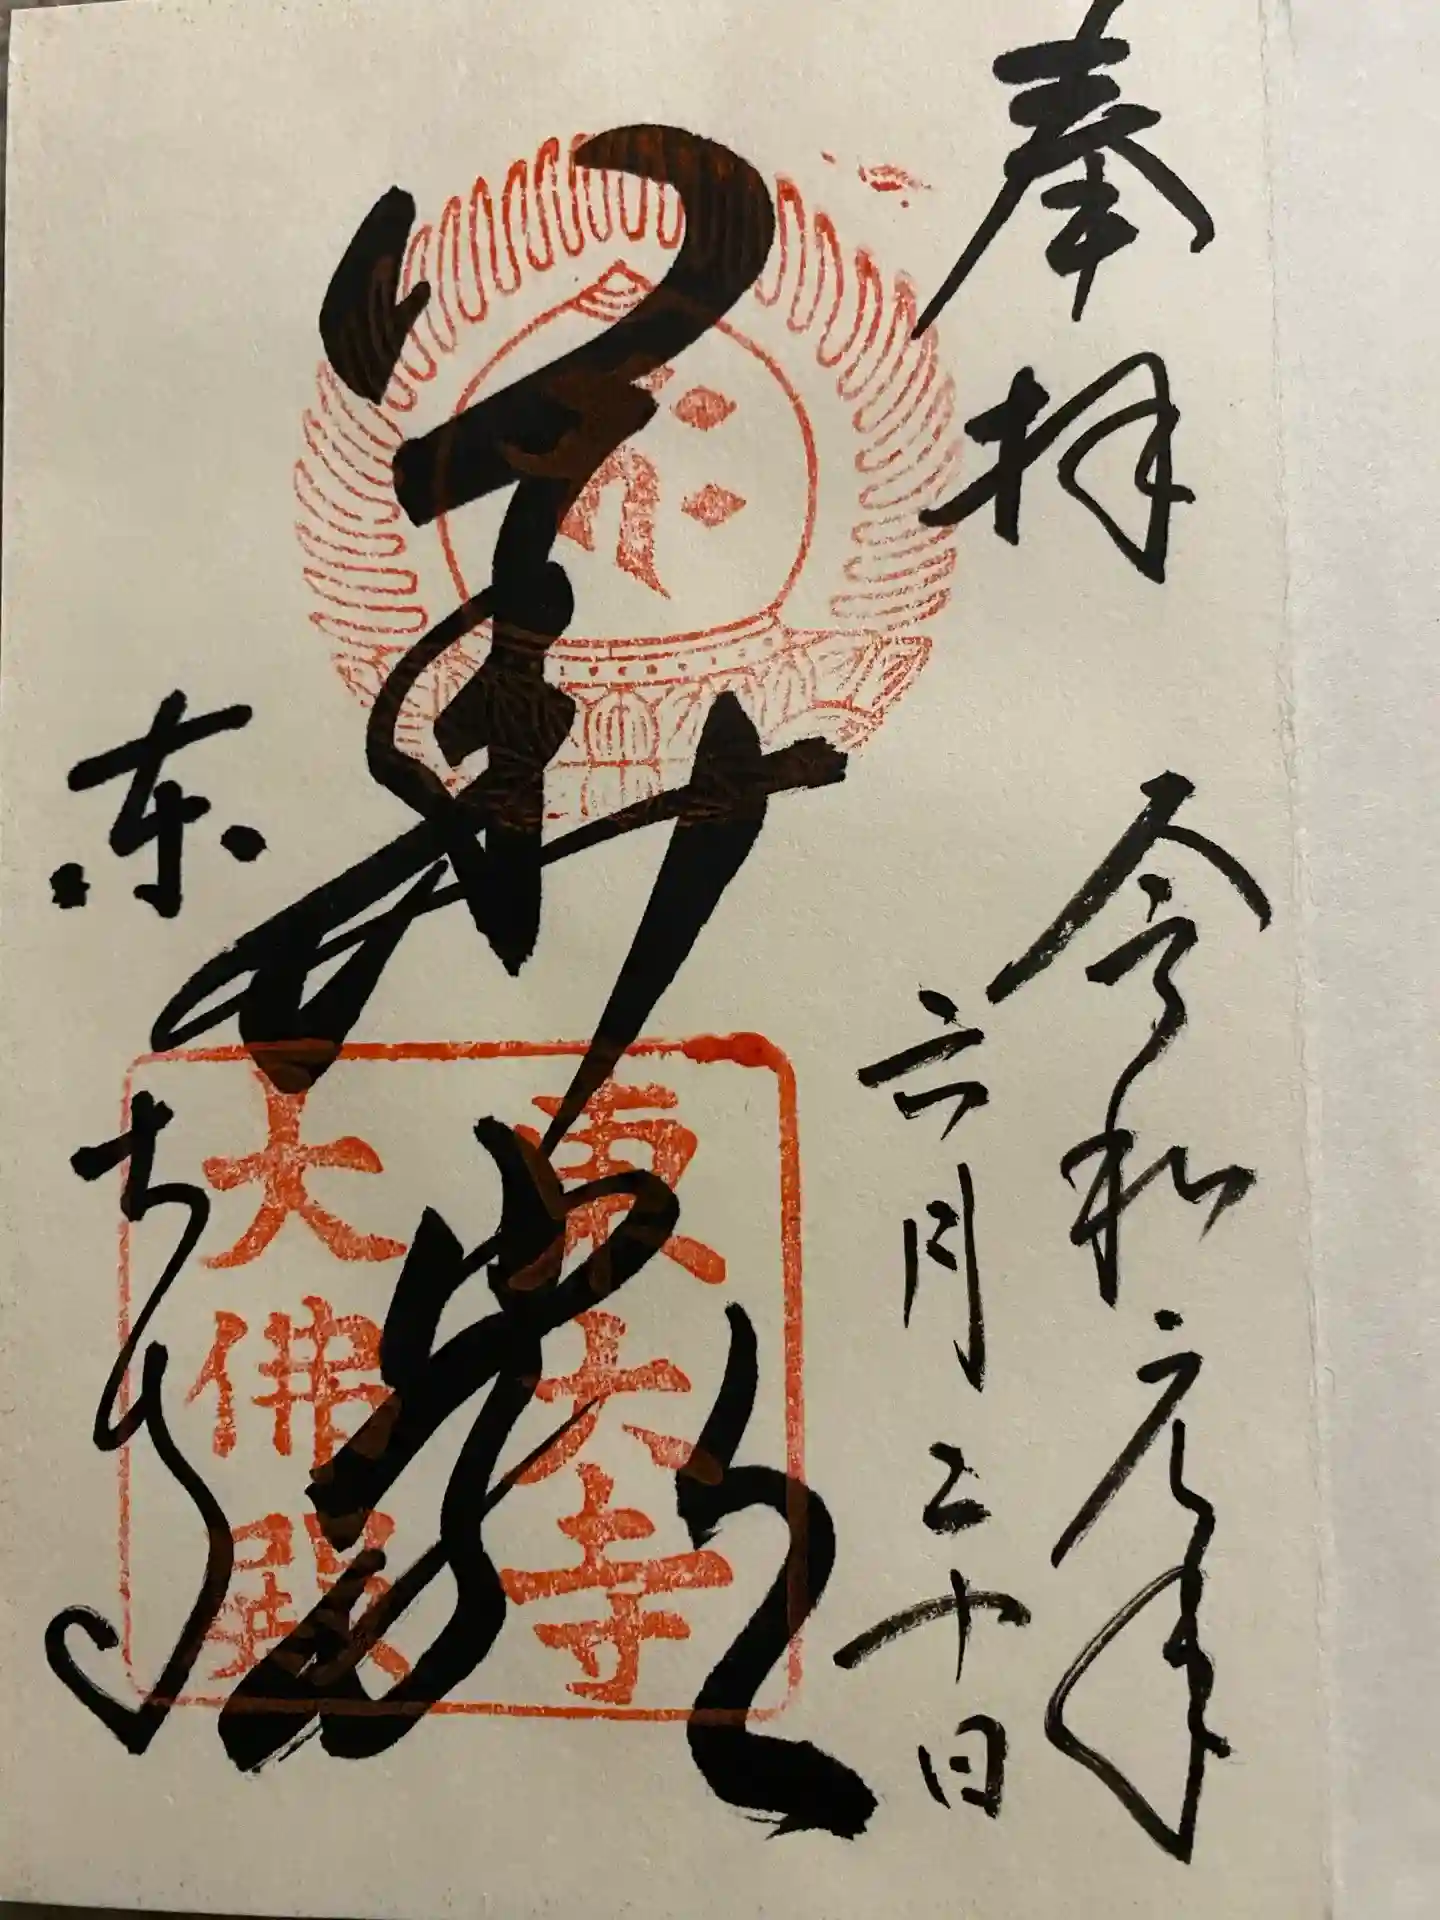 奉拝
令和元年
六月二十日
華厳
東大寺
東大寺
大佛殿